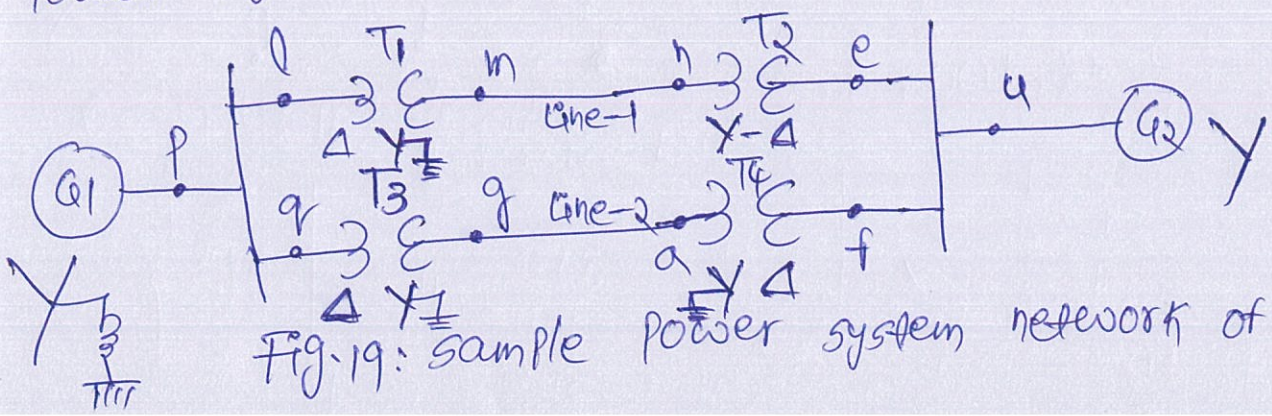 l T1 m n T2 e
Line-1 u
P Δ Y Y-Δ G2 Y
G1 T3 T4
q g Line-2
a f
Δ Y Y Δ
Y
Fig.19: Sample power system network of